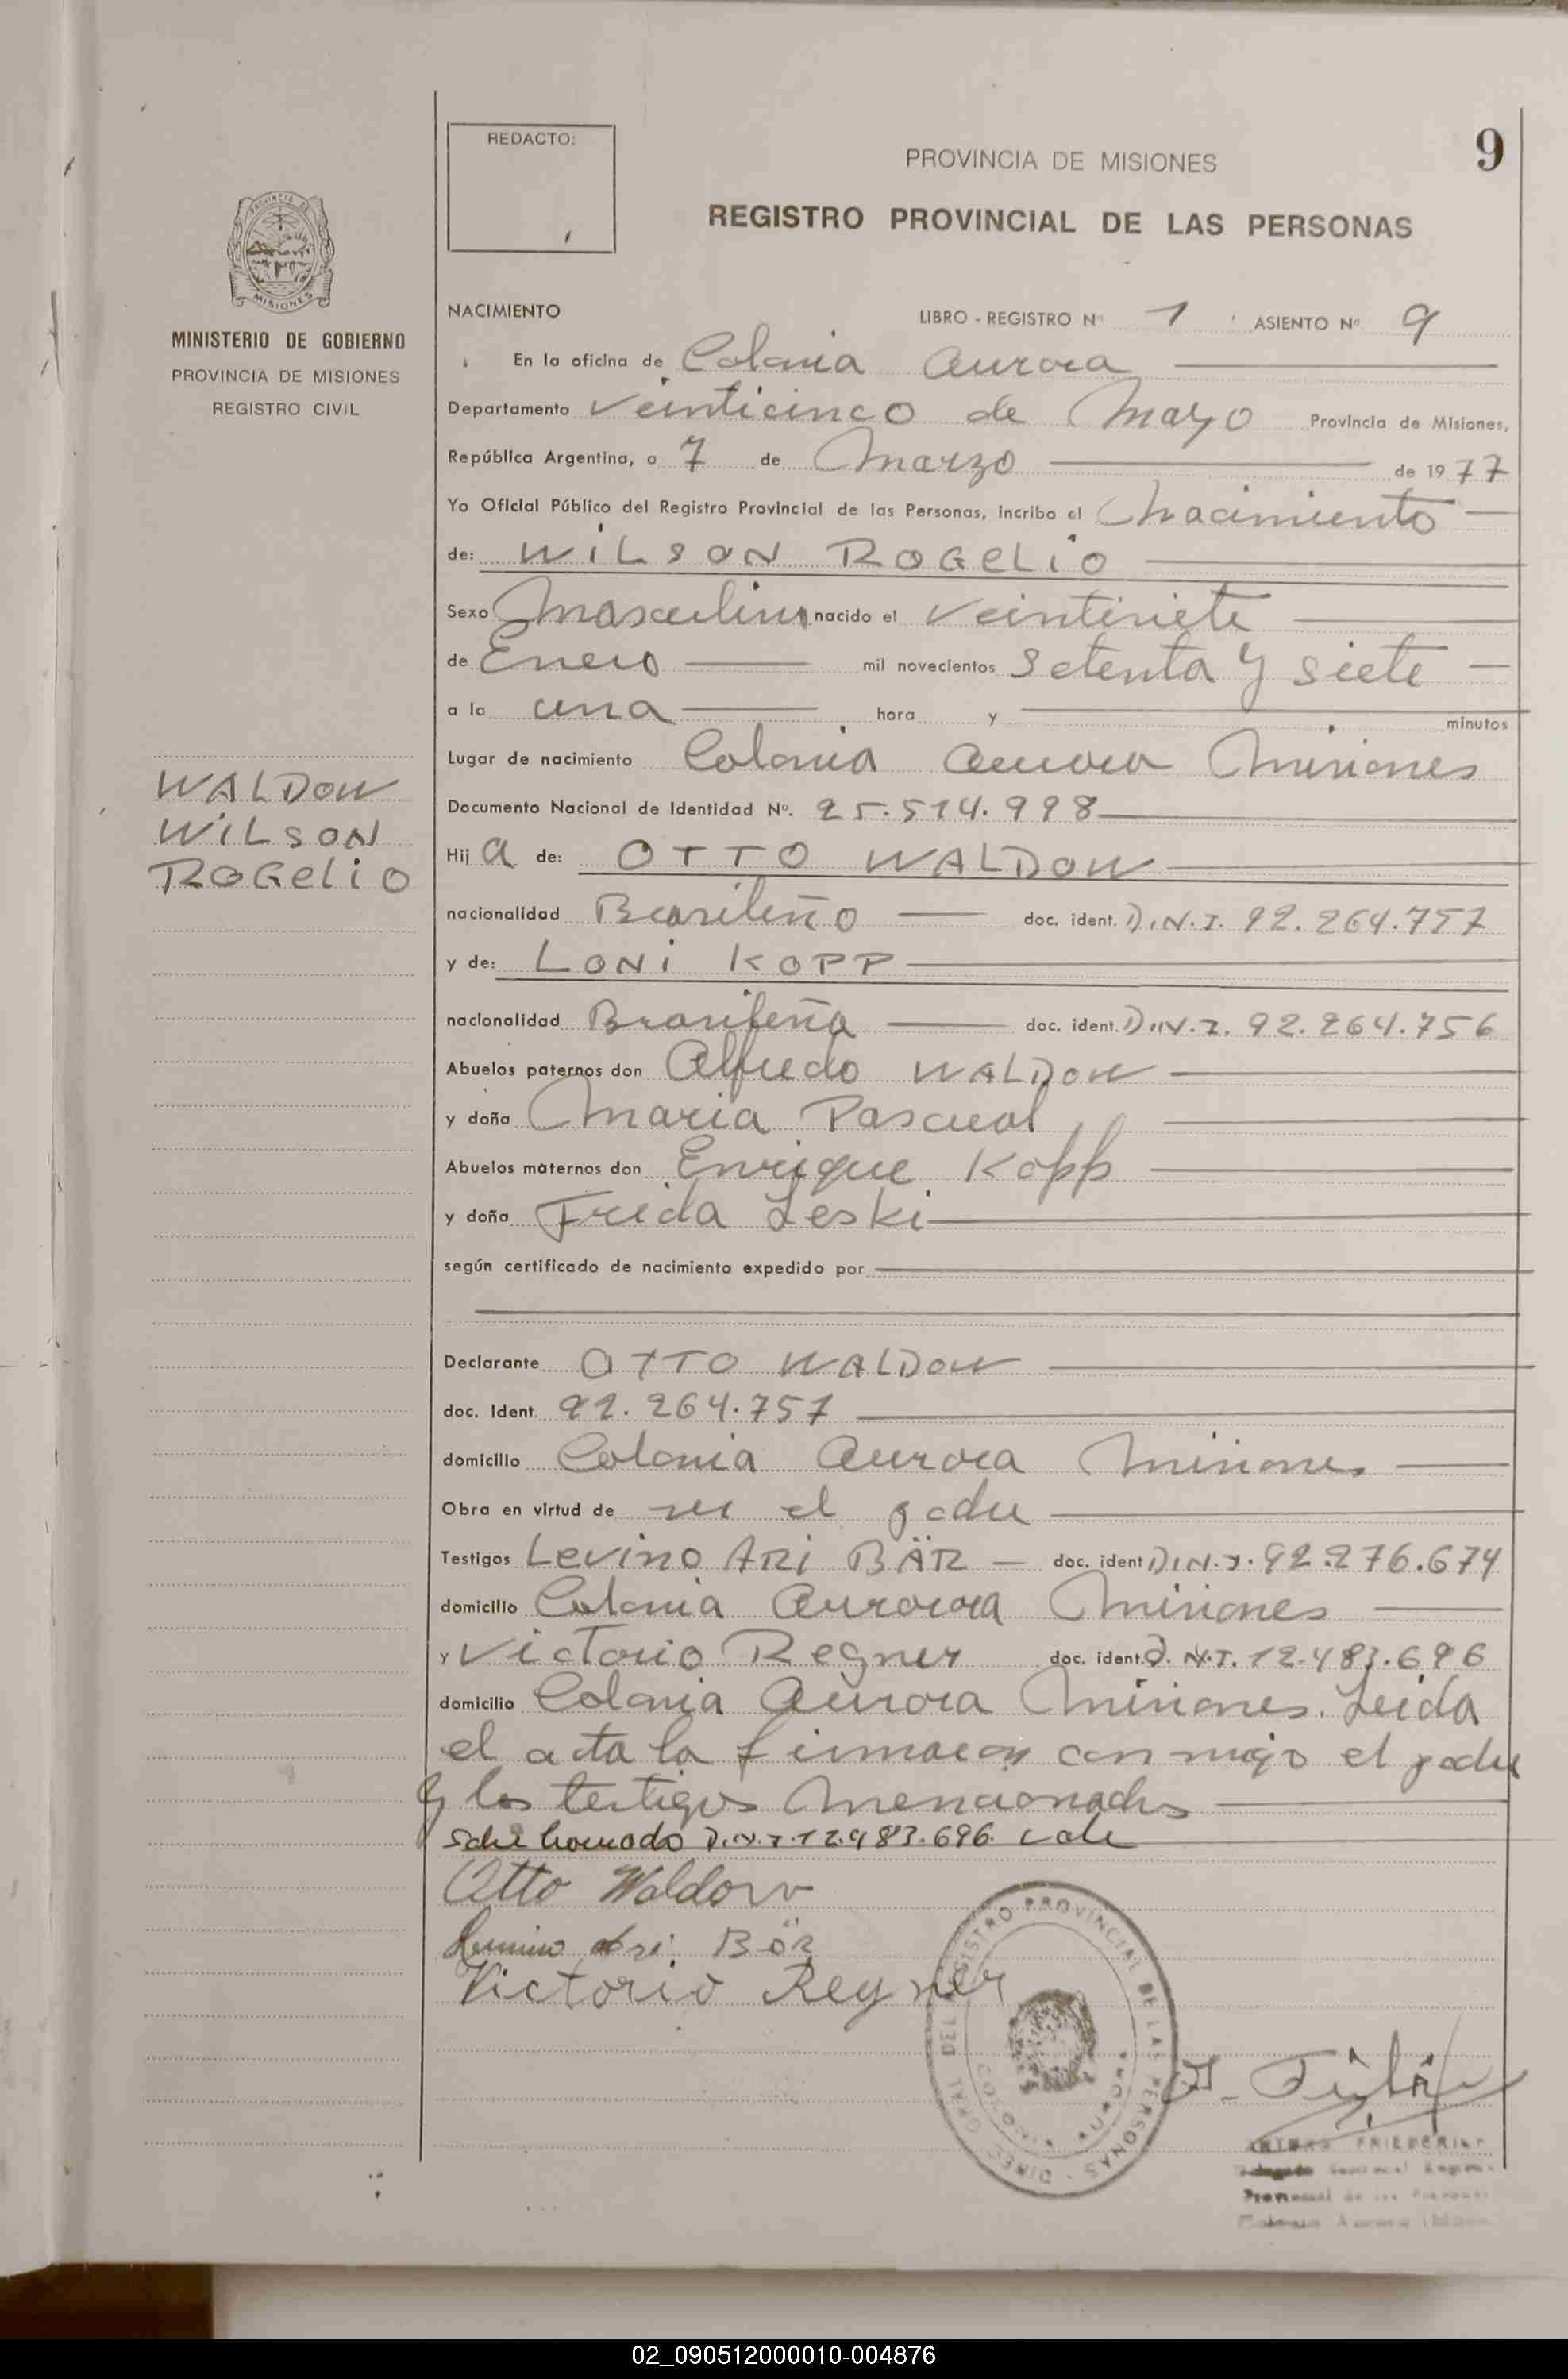 REDACTO:
PROVINCIA DE MISIONES
9
REGISTRO PROVINCIAL DE LAS PERSONAS
MISIONES
MINISTERIO DE GOBIERNO
PROVINCIA DE MISIONES
REGISTRO CIVIL
NACIMIENTO LIBRO - REGISTRO Nº 1 ASIENTO Nº 9
En la oficina de Colonia Aurora
Departamento Veinticinco de Mayo Provincia de Misiones,
República Argentina, a 7 de Marzo de 1977
Yo Oficial Público del Registro Provincial de las Personas, incribo el Nacimiento
de: WILSON ROGELIO
Sexo Masculino nacido el veintisiete
de Enero mil novecientos Setenta y siete
a la una hora y minutos
Lugar de nacimiento Colonia Aurora Misiones
WALDOW
WILSON
ROGELIO
Documento Nacional de Identidad Nº. 25.514.998
Hij a de: OTTO WALDOW
nacionalidad Brasileño doc. ident. D.N.I. 92.264.757
y de: LONI KOPP
nacionalidad Brasileña doc. ident. D.N.I. 92.264.756
Abuelos paternos don Alfredo WALDOW
y doña Maria Pascual
Abuelos maternos don Enrique Kopp
y doña Frida Leski
según certificado de nacimiento expedido por
Declarante OTTO WALDOW
doc. Ident. 92.264.757
domicilio Colonia Aurora Misiones
Obra en virtud de ser el padre
Testigos Levino ARI BÄR doc. ident D.N.I. 92.276.674
domicilio Colonia Aurorora Misiones
y Victorio Regner doc. ident. D.N.I. 12.483.696
domicilio Colonia Aurora Misiones. Leida
el acta la firmaron conmigo el padre
y los testigos mencionados
Sobre borrado D.N.I. 12.983.696. vale
Otto Waldow
Ari Bär
Victorio Regner
DIREC. GRAL. DEL REGISTRO PROVINCIAL DE LAS PERSONAS